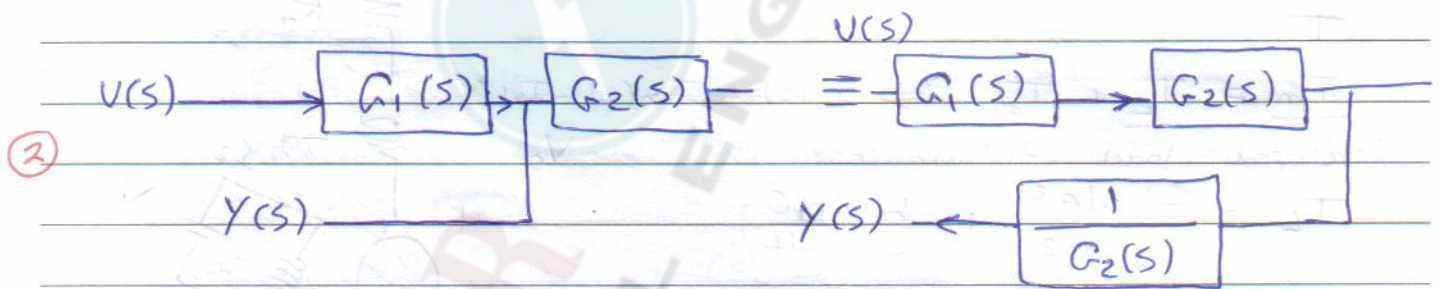 U(S)
U(S) G₁(S) G₂(S) ≡ G₁(S) G₂(S)
②
Y(S) Y(S) 1
G₂(S)